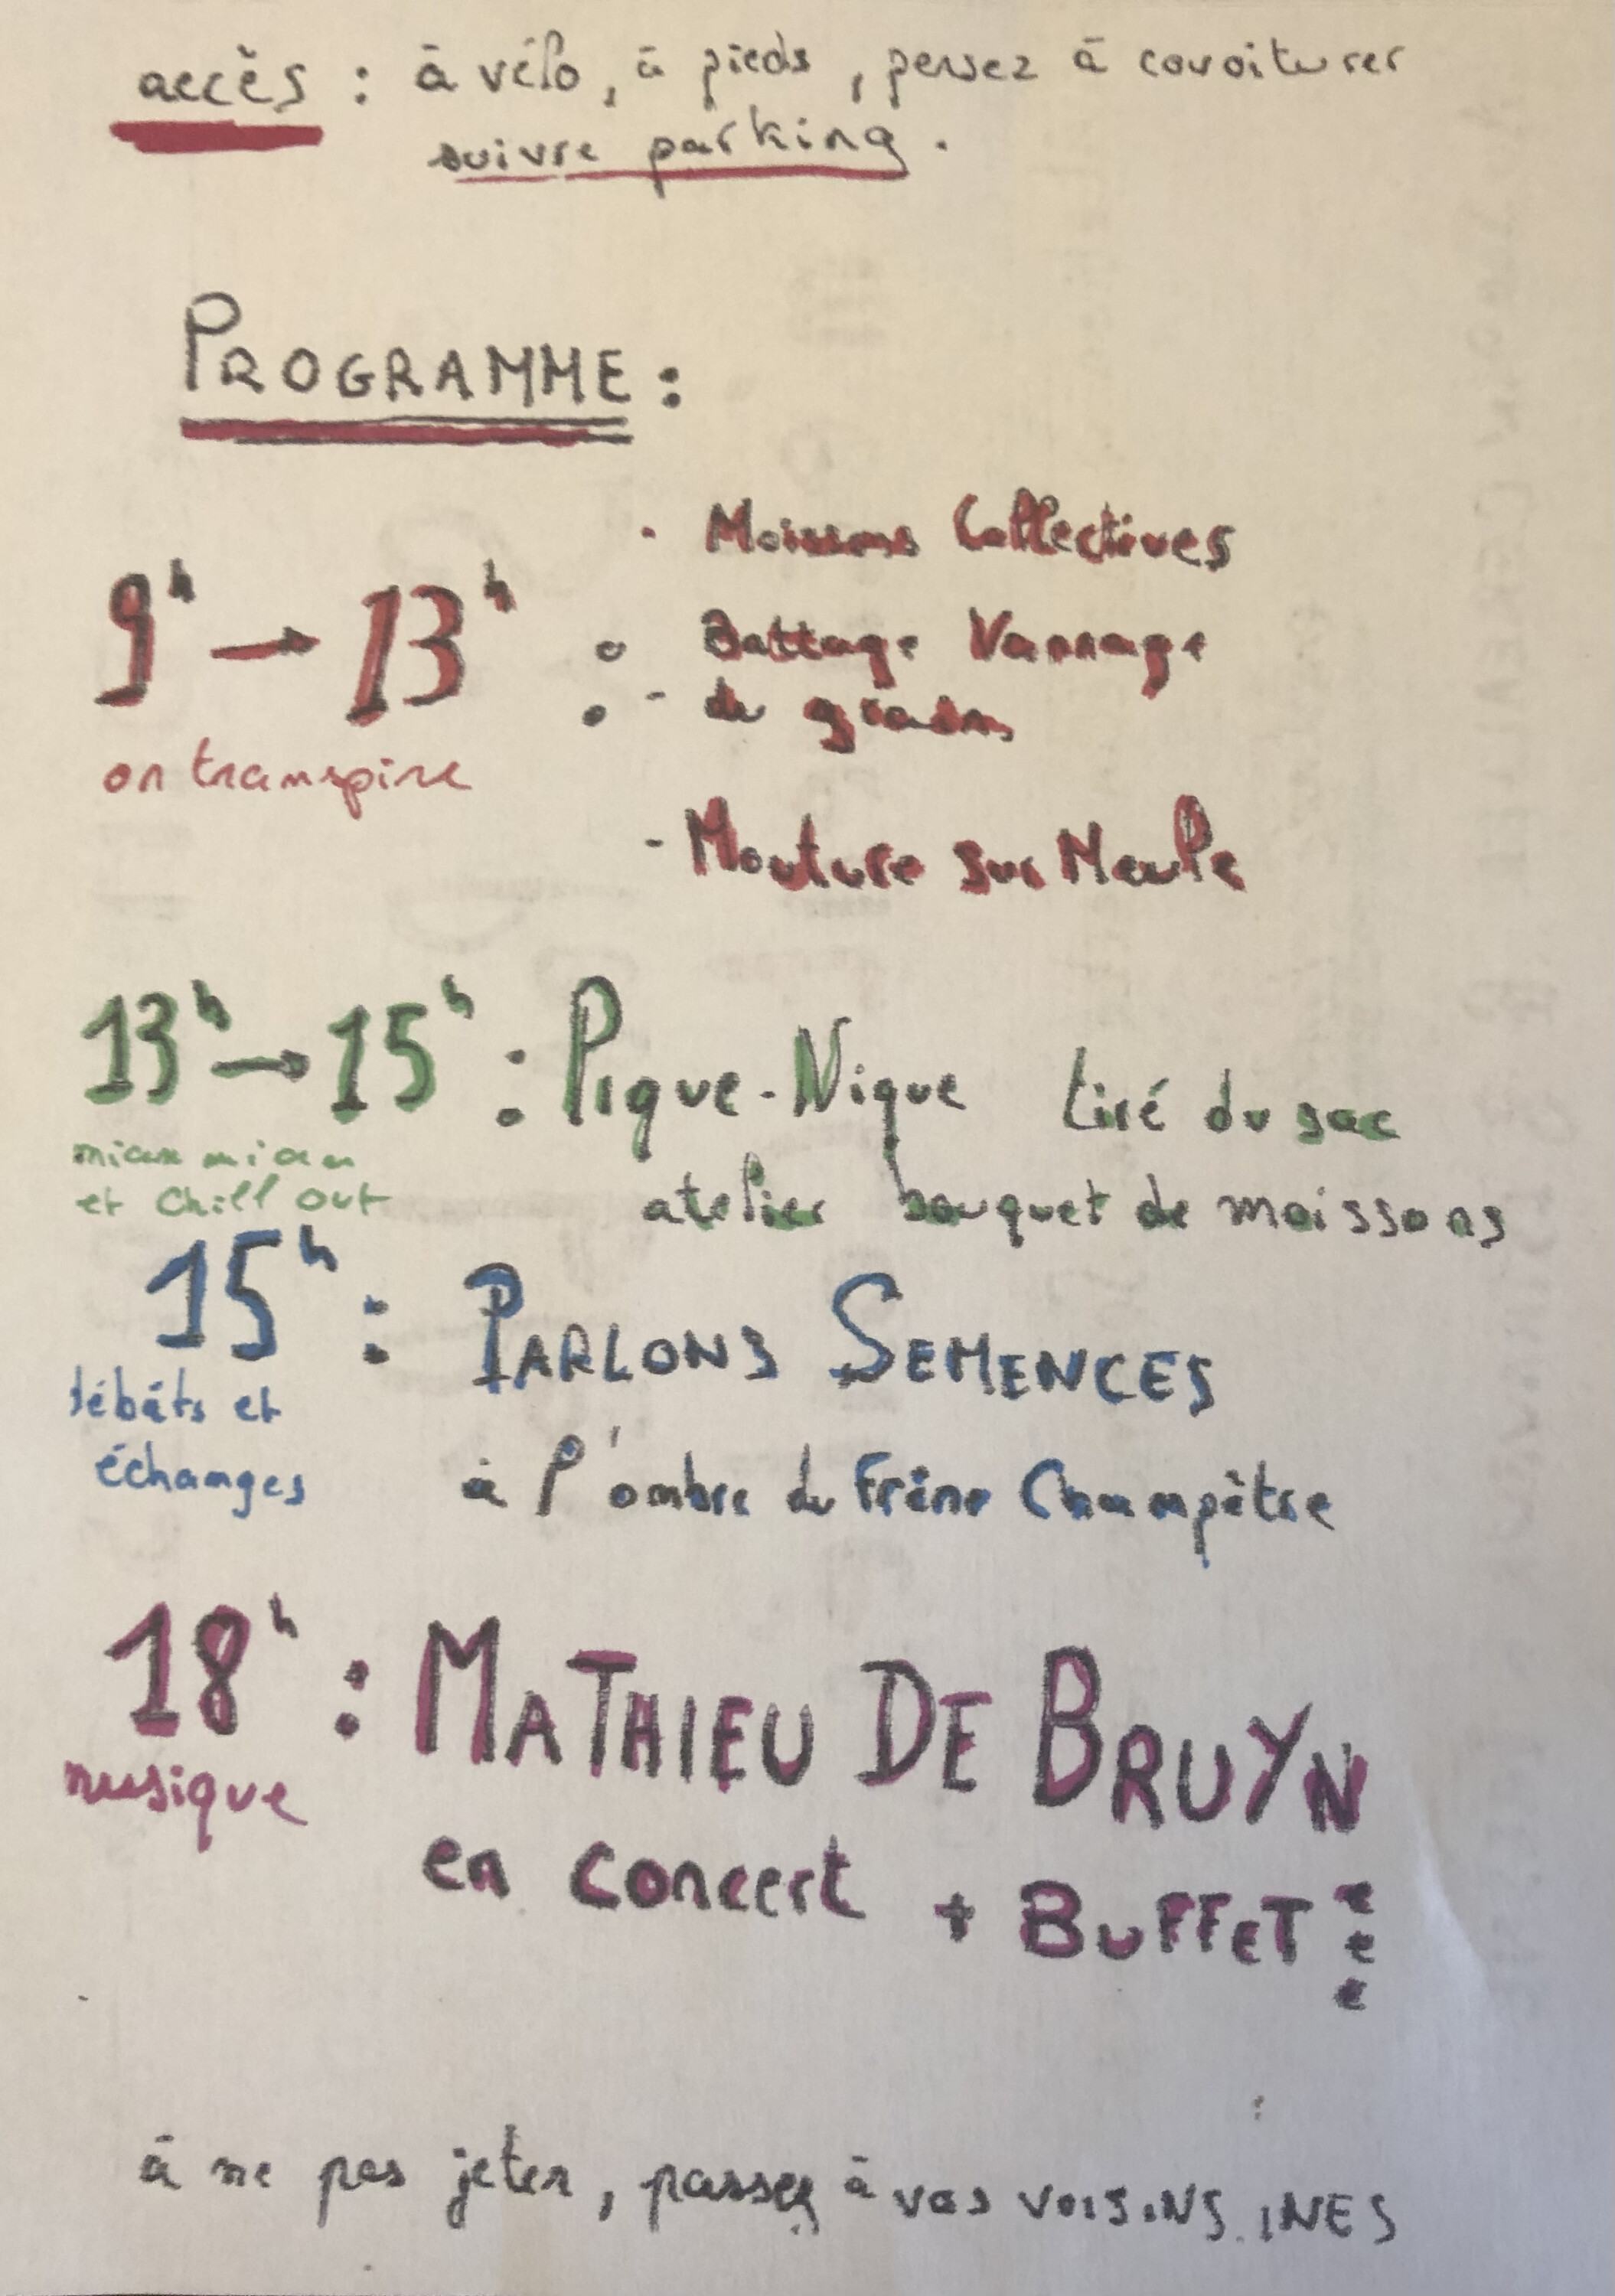 accès : à vélo, à pieds, pensez à covoiturer
suivre parking.
PROGRAMME :
- Moissons Collectives
9h → 13h :
- Battage Vannage
de grains
on transpire
- Mouture sur Meule
13h → 15h : Pique-Nique tiré du sac
miam miam
et chill out
atelier bouquet de moissons
15h : PARLONS SEMENCES
débats et
échanges
à l'ombre du Frêne Champêtre
18h : MATHIEU DE BRUYN
musique
en concert + BUFFET
à ne pas jeter, passez à vos voisins.ines